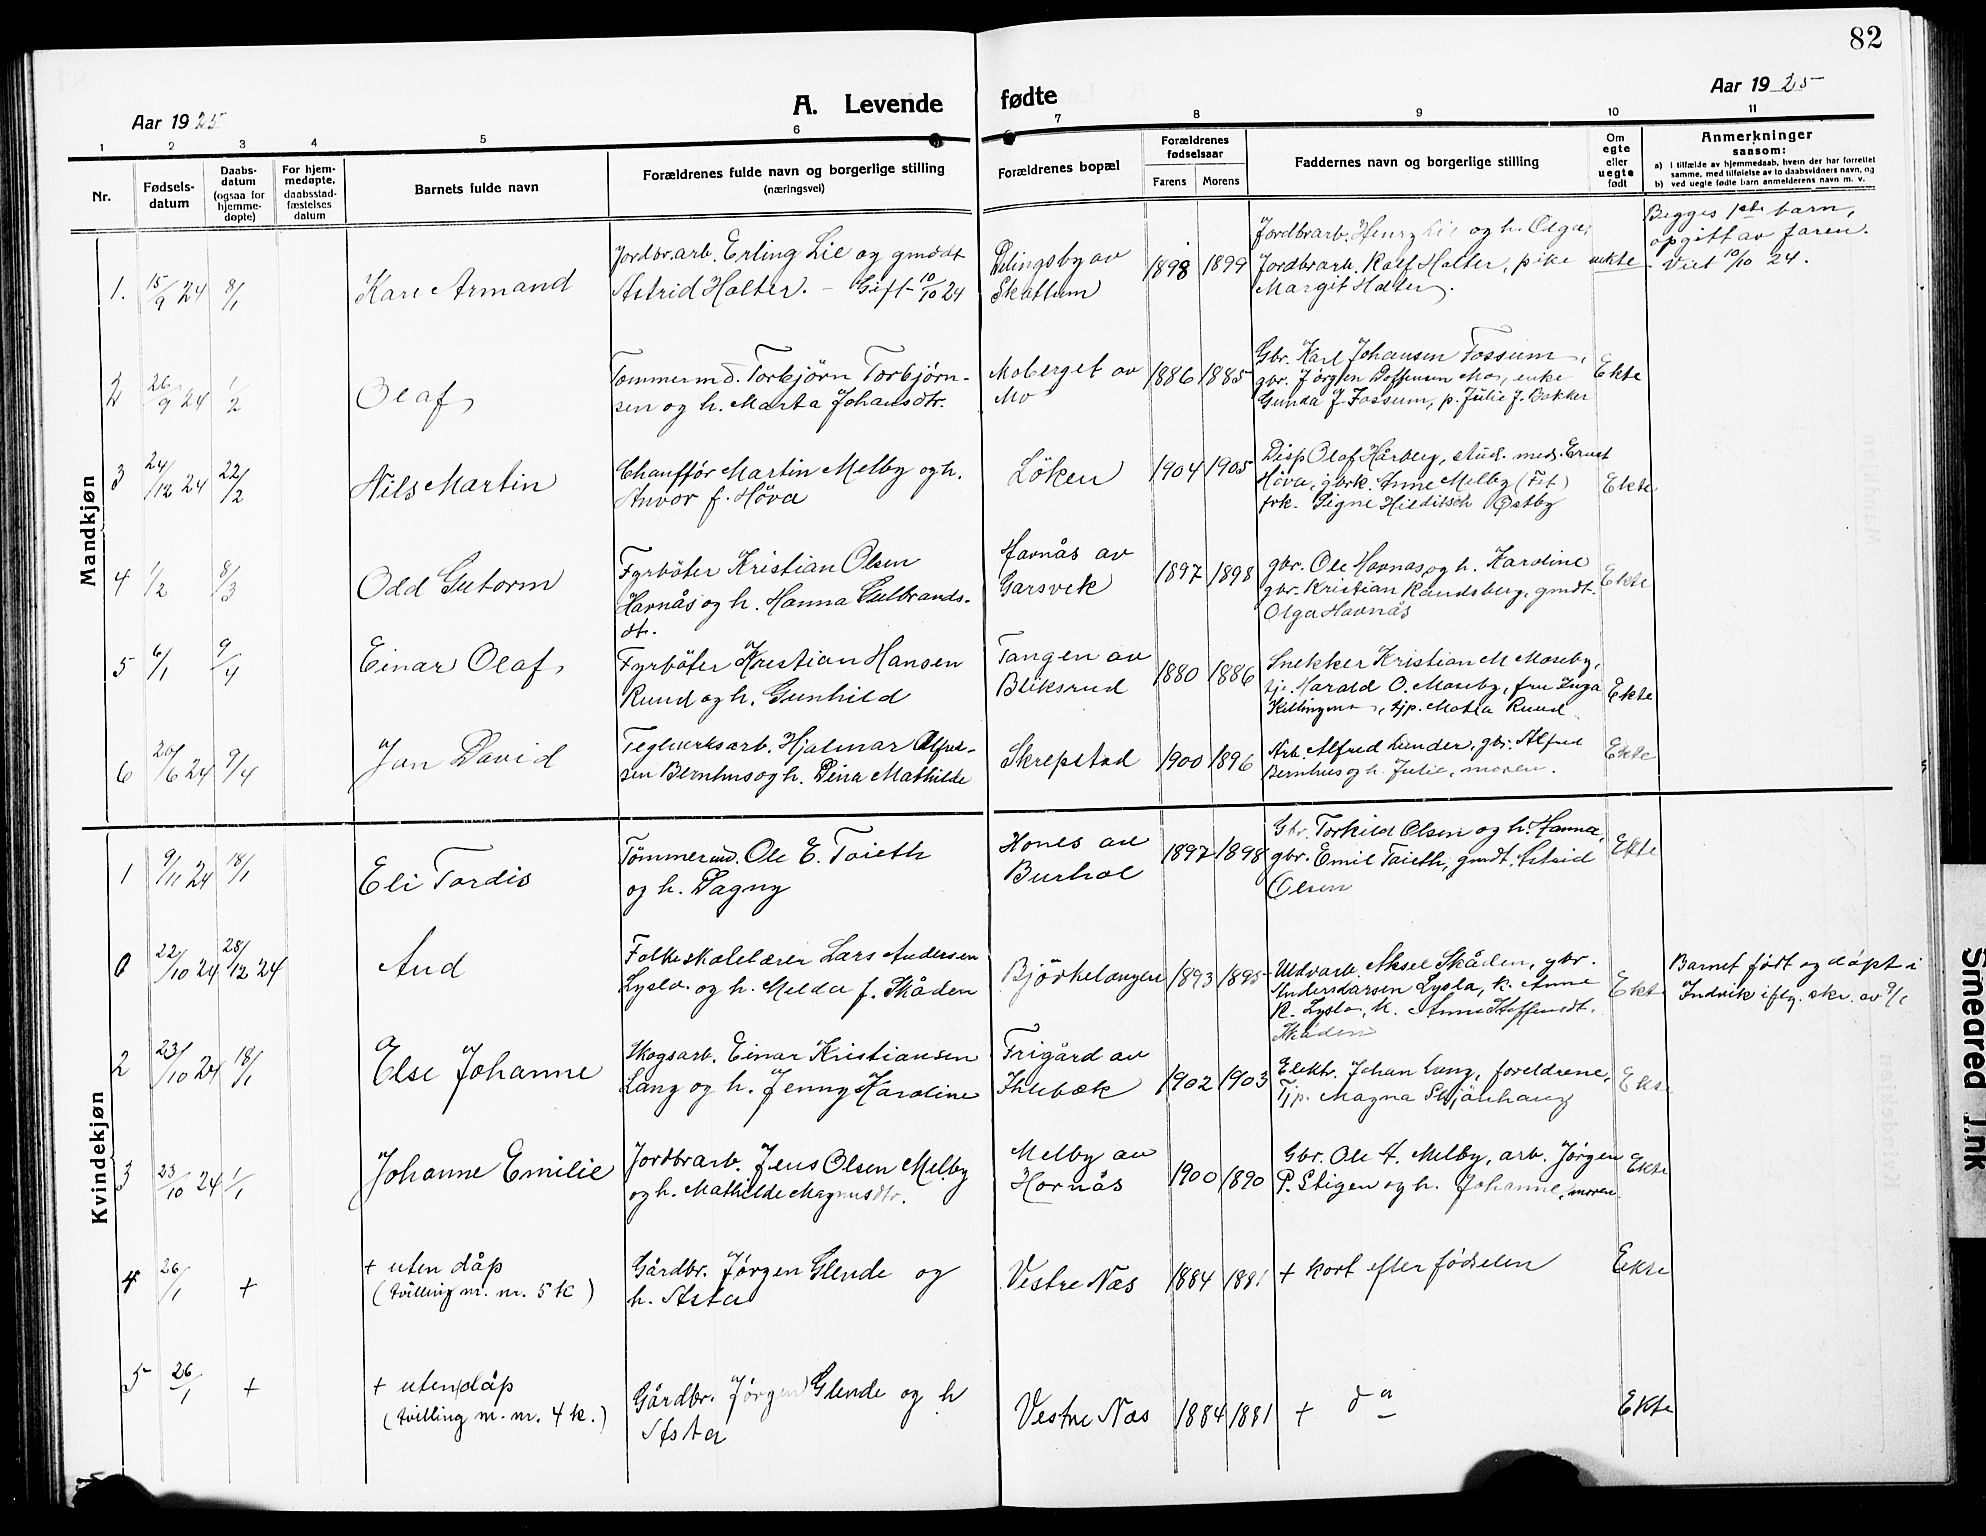 82
Aar 1925
A. Levende fødte
Aar 1925
1 2 3 4 5 6 7 8 9 10 11
Nr.
Fødsels-
datum
Daabs-
datum
(ogsaa for
hjemme-
døpte)
For hjem-
medøpte,
daabsstad-
fæstelses
datum
Barnets fulde navn
Forældrenes fulde navn og borgerlige stilling
(næringsvei)
Forældrenes bopæl
Forældrenes
fødselsaar
Farens Morens
Faddernes navn og borgerlige stilling
Om
egte
eller
uegte
født
Anmerkninger
saasom:
a) I tilfælde av hjemmedaab, hvem der har forrettet
samme, med tilføielse av to daabsvidners navn, og
b) ved uegte fødte barn anmelderens navn m. v.
Mandkjøn
1. 15/9 24 8/1
Kåre Armand
Jordbr.arb. Erling Lie og gmddt
Astrid Holter. - Gift 10/10 24
av
Skattum
1898 1899
Jordbrarb. Henry Lie og h. Olga,
Jordbrarb. Rolf Holter, pike
Margit Holter.
uekte
Begges 1ste barn,
opgitt av faren.
- Viet 10/10 24.
2 26/9 24 1/2
Olaf
Tømmermd. Torbjørn Torbjørn-
sen og h. Marta Johansdtr.
Moberget av
Mo
1886 1885
Gbr. Karl Johansen Fossum,
gbr. Jørgen Doffensen Mo, enke
Gunda J. Fossum, p. Julie J. Bakker
Ekte
3 24/12 24 22/2
Nils Martin
Chauffør Martin Melby og h.
Anvor f. Høva
Löken
1904 1905
Disp. Olaf Hårberg, stud. med. Ernst
Høva, gbrk. Anne Melby (Fet)
frk. Signe Hilditsch Østby
Ekte
4 1/2 8/3
Odd Gutorm
Fyrböter Kristian Olsen
Havnås og h. Hanna Gulbrands-
dt.
Havnås av
Garsvik
1897 1898
gbr. Ole Havnås og h. Karoline
gbr. Kristian Kandsberg, gmdt.
Olga Havnås
Ekte
5 6/1 9/4
Einar Olaf
Fyrböter Kristian Hansen
Ruud og h. Gunhild
Tangen av
Bliksrud
1880 1886
Snekker Kristian M Moseby,
tje. Harald O. Moseby, fru Inga
Killingmo, tjp. Marta Ruud
Ekte
6 20/6 24 9/4
Jan David
Teglverksarb. Hjalmar Alfred-
sen Bernhus og h. Dina Mathilde
Skrepstad
1900 1896
Arb. Alfred Lunder, gbr. Alfred
Bernhus og h. Julie, moren.
Ekte
Kvindekjøn
1 9/11 24 18/1
Eli Tordis
Tømmermd. Ole E. Toieth
og h. Dagny
Hones av
Burhol
1897 1898
Gbr. Torkild Olsen og h. Hanna,
gbr. Emil Toieth, gmdt. Astrid
Olsen
Ekte
0 22/10 24 28/12 24
Aud
Folkeskolelærer Lars Andersen
Lysla. og h. Melda f. Skåden
Bjørkelangen
1893 1895
Udvarb. Aksel Skåden, gbr.
Lysla, k. Anne
K. Lysla, k. Anne
Skåden
Ekte
Barnet født og døpt i
Indvik iflg. skr. av 9/1
2 23/10 24 18/1
Else Johanne
Skogsarb. Einar Kristiansen
Lang og h. Jenny Karoline
Frigård av
Ihlebæk
1902 1903
Elektr. Johan Lang, foreldrene,
Tjp. Magna Skjönhaug
Ekte
3 23/10 24 1/1
Johanne Emilie
Jordbrarb. Jens Olsen Melby
og h. Mathilde Magnusdtr.
Melby av
Hornås
1900 1890
Gbr. Ole A. Melby, arb. Jørgen
P. Stigen og h. Johanne, moren
Ekte
4 26/1 +
+ uten dåp
(tvilling m. nr. 5 k)
Gårdbr. Jørgen Glende og
h. Asta
Vestre Næs
1884 1881
+ kort efter fødselen
Ekte
5 26/1 +
+ uten dåp
(tvilling m. nr. 4 k.)
Gårdbr. Jørgen Glende og h
Asta
Vestre Næs
1884 1881
+ do
Ekte
Smeared Ink